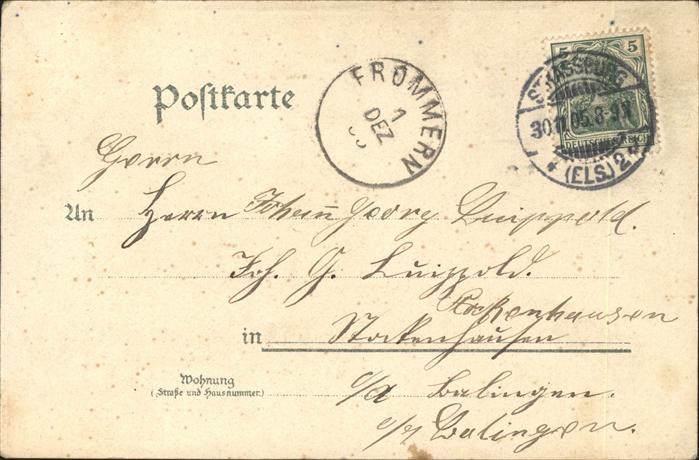 FROMMERN
1
DEZ
5 5
DEUTSCHES REICH
STRASSBURG
30.11.05. 8-9V
* (ELS) 2
Postkarte
Herrn
An Herrn Johann Georg Luippold.
Joh. G. Luippold.
Stockenhausen
in Stockenhausen
Wohnung
(Straße und Hausnummer)
o/A Balingen.
o/A Balingen.